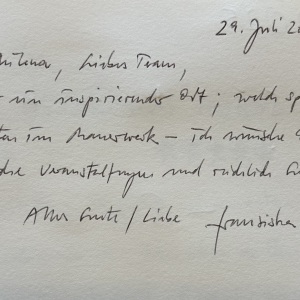 29. Juli 20
Milena, Liebes Team,
ein inspirierender Ort; welch sp
im Mauerwerk – ich wünsche
Veranstaltungen und
Alles Gute / Liebe Franziska